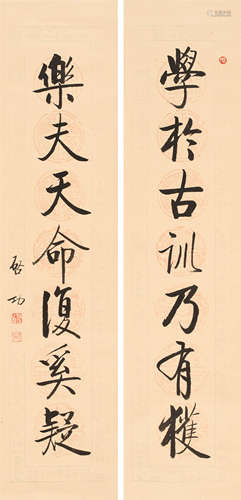 學於古訓乃有獲
樂夫天命復奚疑
啟功